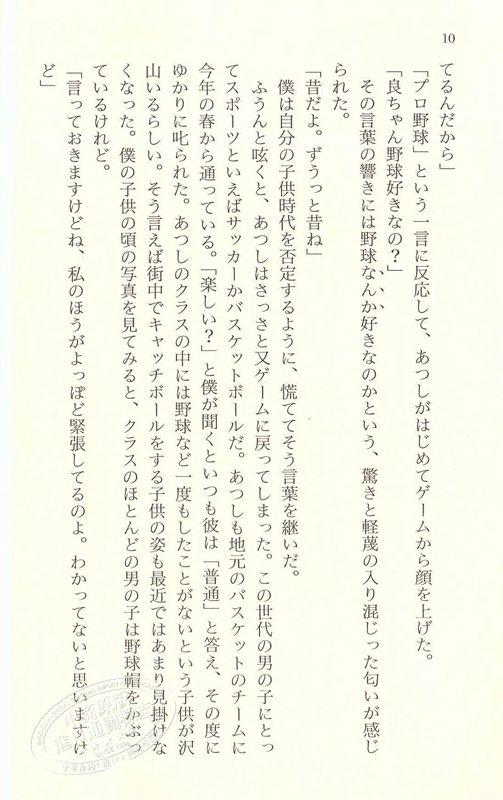 10
てるんだから」
「プロ野球」という一言に反応して、あつしがはじめてゲームから顔を上げた。
「良ちゃん野球好きなの？」
その言葉の響きには野球なんか好きなのかという、驚きと軽蔑の入り混じった匂いが感じ
られた。
「昔だよ。ずうっと昔ね」
僕は自分の子供時代を否定するように、慌ててそう言葉を継いだ。
ふうんと呟くと、あつしはさっさと又ゲームに戻ってしまった。この世代の男の子にとっ
てスポーツといえばサッカーかバスケットボールだ。あつしも地元のバスケットのチームに
今年の春から通っている。「楽しい？」と僕が聞くといつも彼は「普通」と答え、その度に
ゆかりに叱られた。あつしのクラスの中には野球など一度もしたことがないという子供が沢
山いるらしい。そう言えば街中でキャッチボールをする子供の姿も最近ではあまり見掛けな
くなった。僕の子供の頃の写真を見てみると、クラスのほとんどの男の子は野球帽をかぶっ
ているけれど。
「言っておきますけどね、私のほうがよっぽど緊張してるのよ。わかってないと思いますけ
ど」